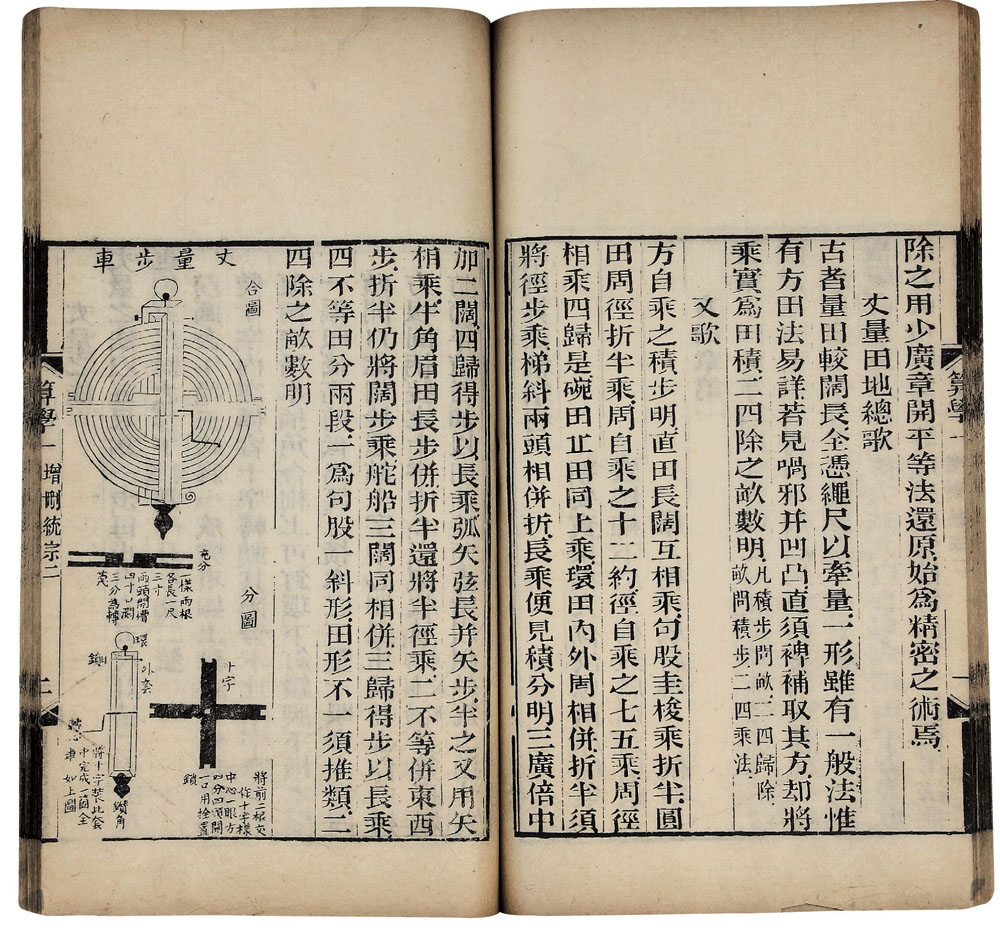 除之用少廣章開平等法還原始為精密之術焉
丈量田地總歌
古者量田較闊長全憑繩尺以牽量一形雖有一般法惟
有方田法易詳若見喎邪并凹凸直須裨補取其方却將
乘實為田積二四除之畝數明凡積步問畝二四歸除
畝問積步二四乘法
又歌
方自乘之積步明直田長闊互相乘句股圭梭乘折半圓
田周徑折半乘周自乘之十二約徑自乘之七五乘周徑
相乘四歸是碗田丘田同上乘環田內外周相併折半須
將徑步乘梯斜兩頭相併折長乘便見積分明三廣倍中
算學
一
加二闊四歸得步以長乘弧矢弦長并矢步半之又用矢
相乘牛角眉田長步併折半還將半徑乘二不等併東西
步折半仍將闊步乘舵船三闊同相併三歸得步以長乘
四不等田分兩段一為句股一斜形田形不一須推類二
四除之畝數明
丈量步車
合圖
分圖
充分
樣兩根
各長一尺
三寸
兩頭開槽
四寸口闊
三分為轉
環
外套
鎖
十字
將前二根交
作十字樣
中心一眼方
四分四頭開
一口用拴置
鎖
鑽角
將十字裝此套
中完成一面全
車如上圖
算學一增刪統宗二
二